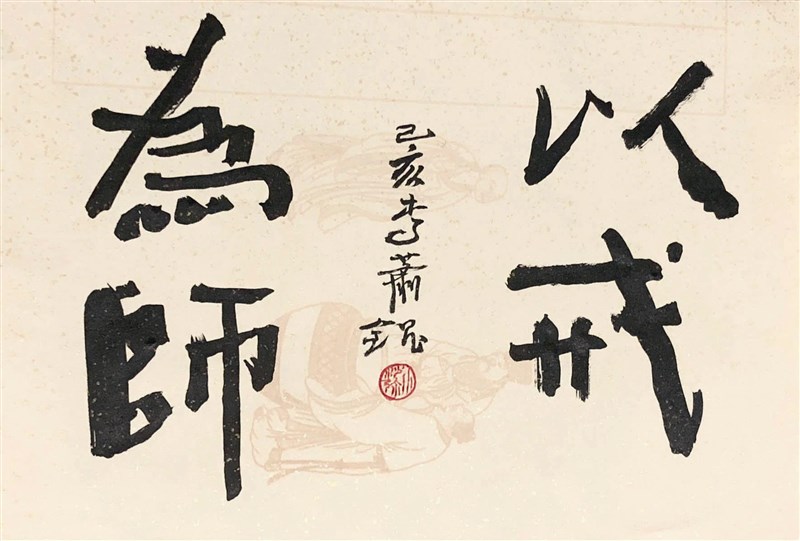 以戒
為師
己亥李蕭錕